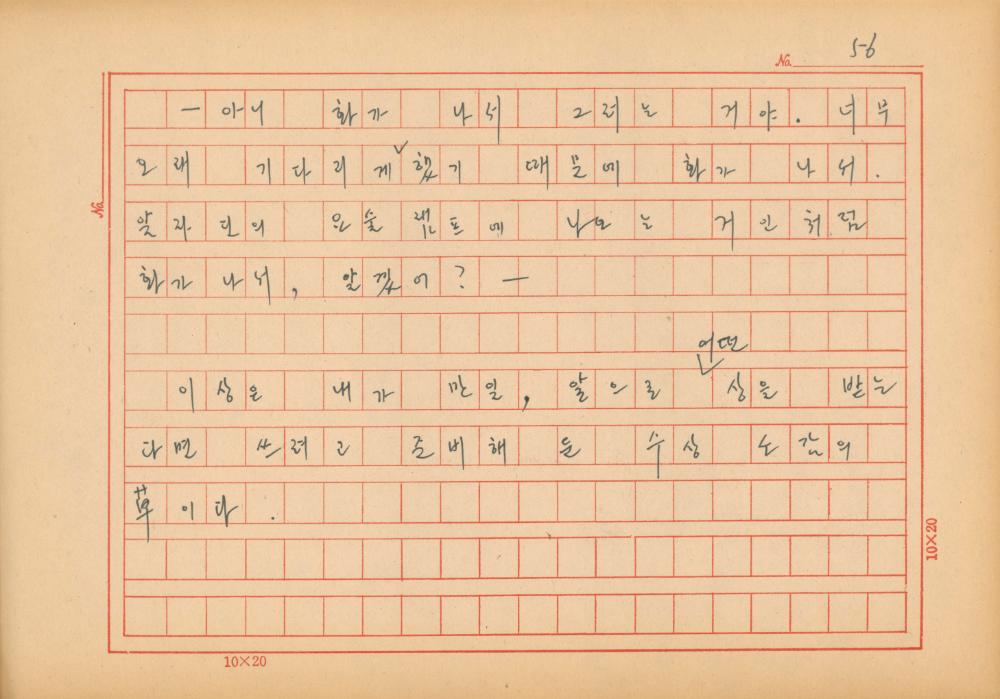 No. 56
—아니 화가 나서 그러는 거야. 너무
오래 기다리게 했기 때문에 화가 나서.
알라딘의 요술램프에 나오는 거인처럼
화가 나서, 알겠어? —
어떤
이상은 내가 만일, 앞으로 상을 받는
다면 쓰려고 준비해 둔 수상 소감의
草이다.
No.
10×20
10×20